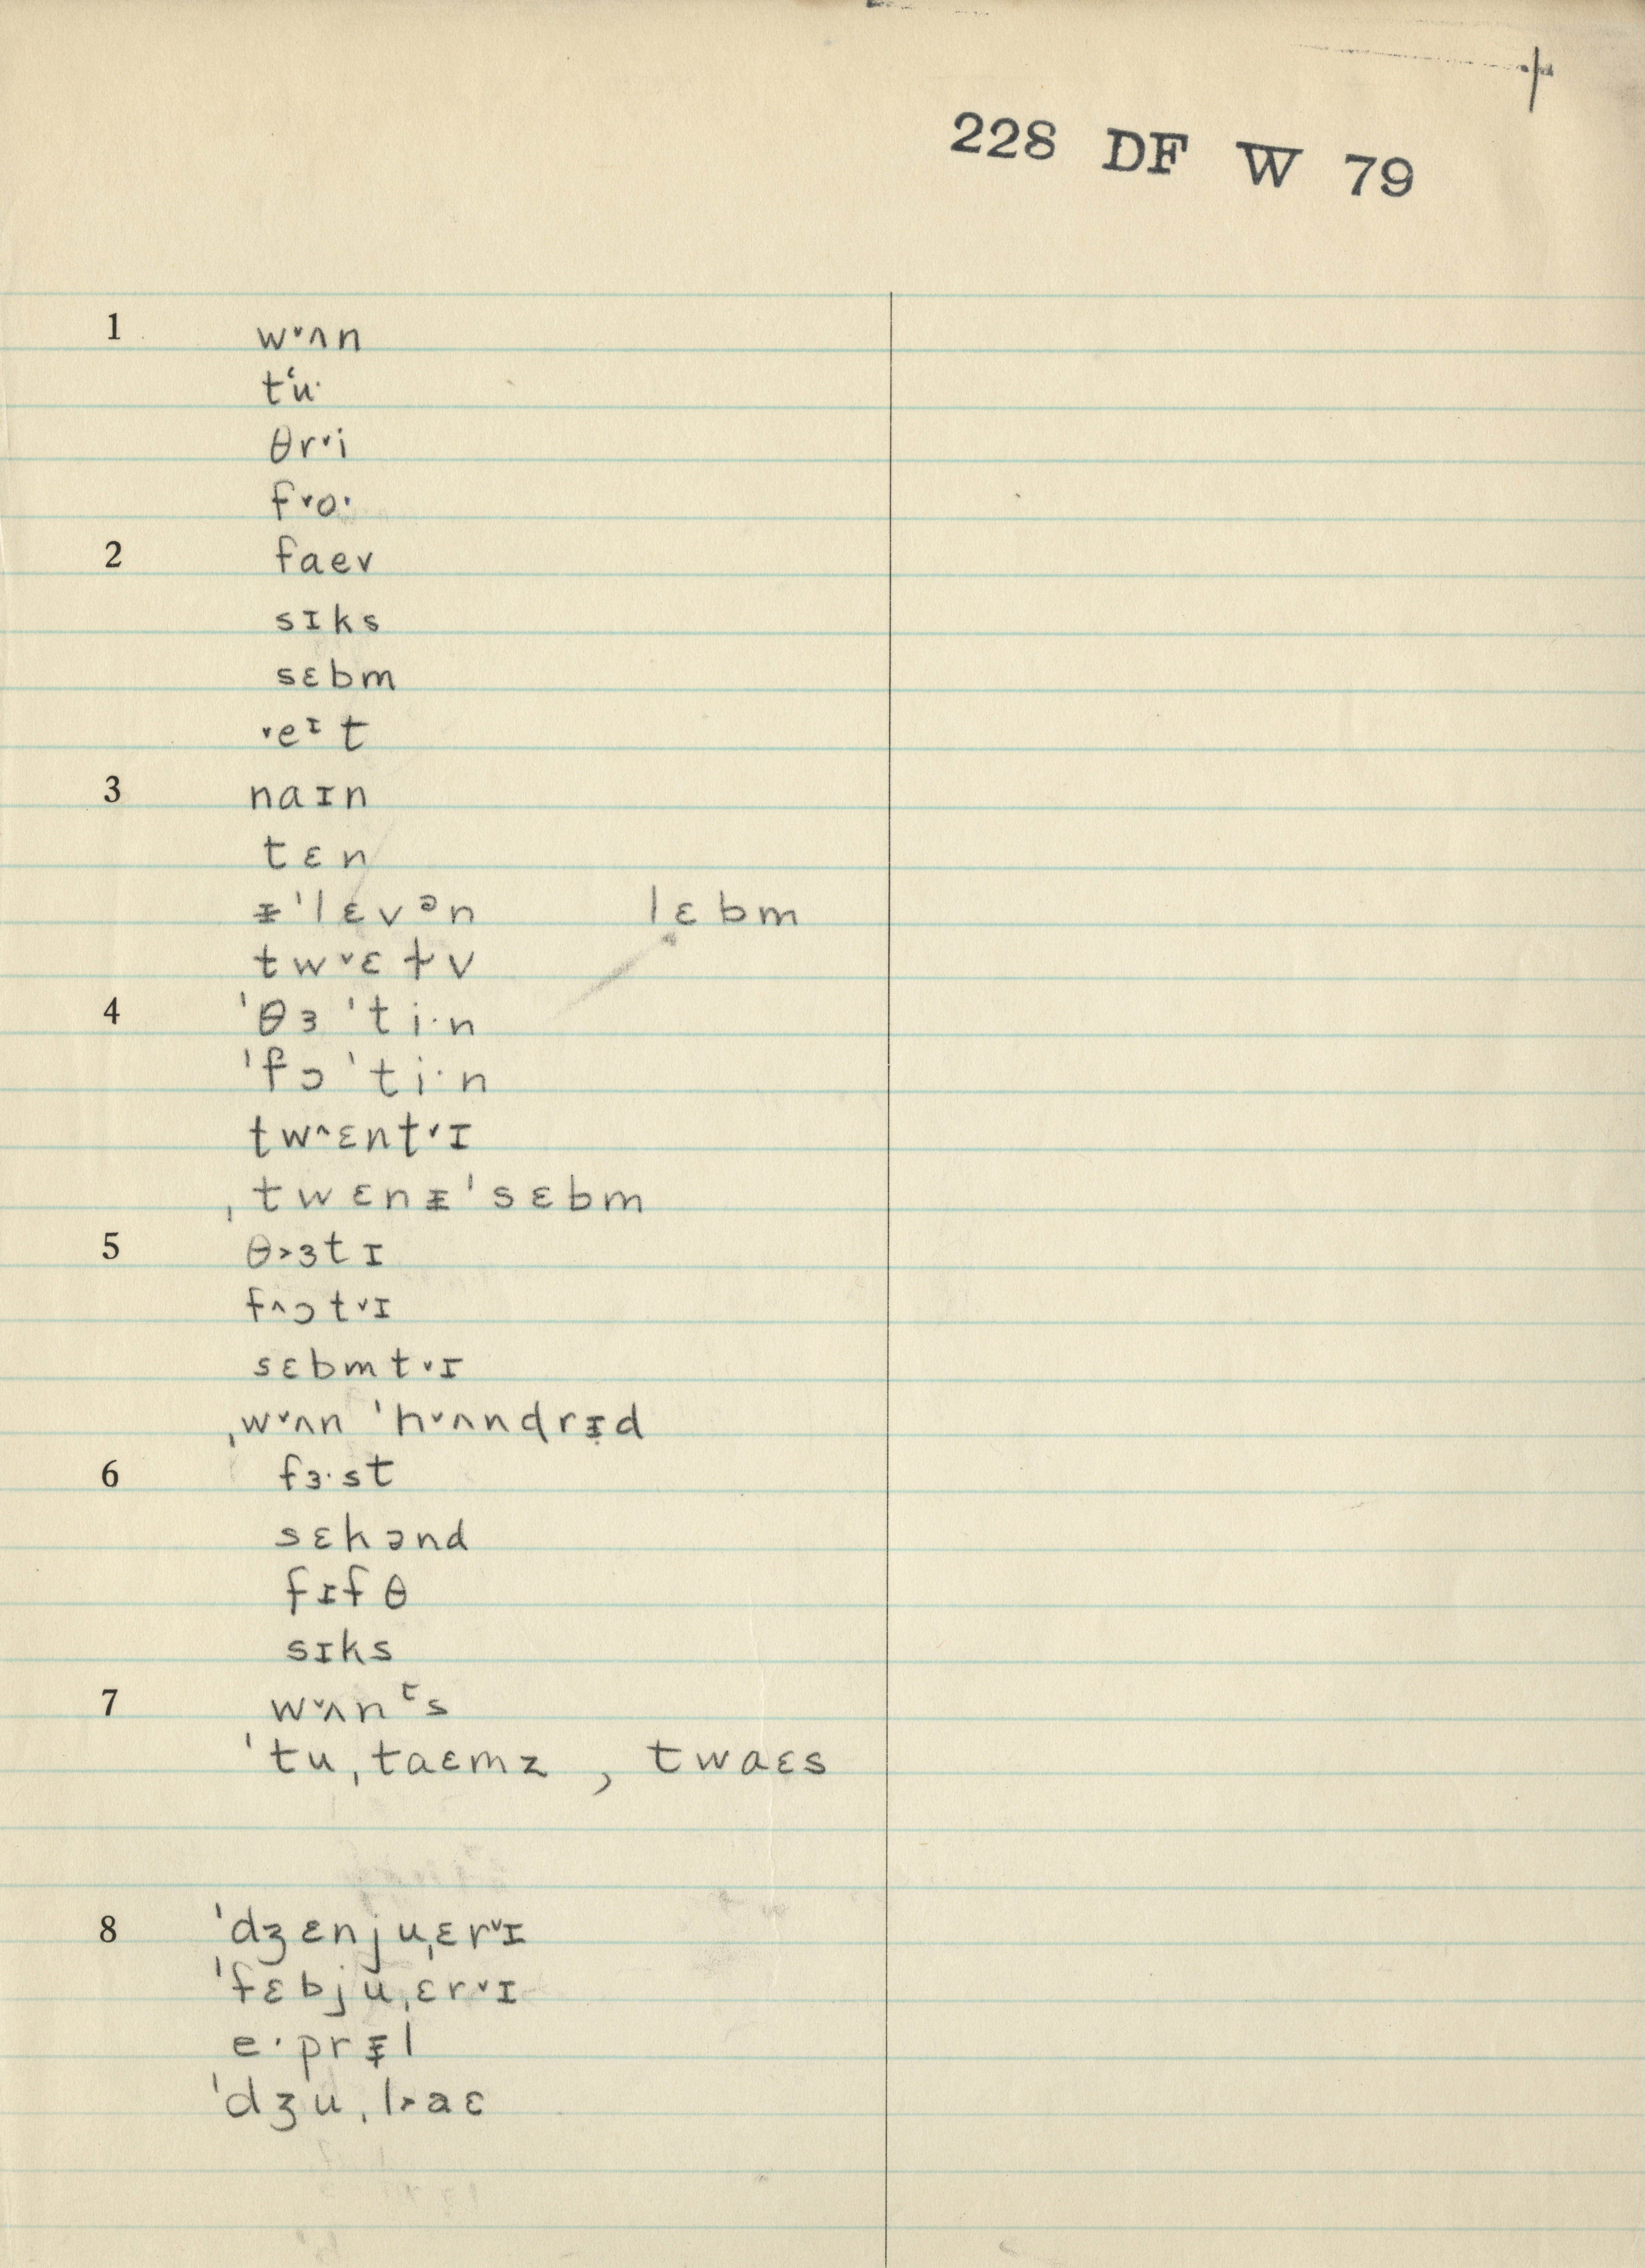 228 DF W 79
1 w˅ʌn
t‘u·
θr˅i
f˅o·
2 faev
sɪks
sɛbm
˅eᶦt
3 naɪn
tɛn
ᵻ'lɛvᵊn lɛbm
tw˅ɛɫv
4 'θɜ'ti·n
'fɔ'ti·n
tw^ɛnt˅ɪ
ˌtwɛnᵻ'sɛbm
5 θ>ɜtɪ
f^ɔt˅ɪ
sɛbmt˅ɪ
ˌw˅ʌn 'h˅ʌndrᵻd
6 fɜ·st
sɛkənd
fɪfθ
sɪks
7 w˅ʌnᵗs
'tuˌtaɛmz , twaɛs
8 'dʒɛnjuˌɛr˅ɪ
'fɛbjuˌɛr˅ɪ
e·prᵻl
'dʒuˌl>aɛ